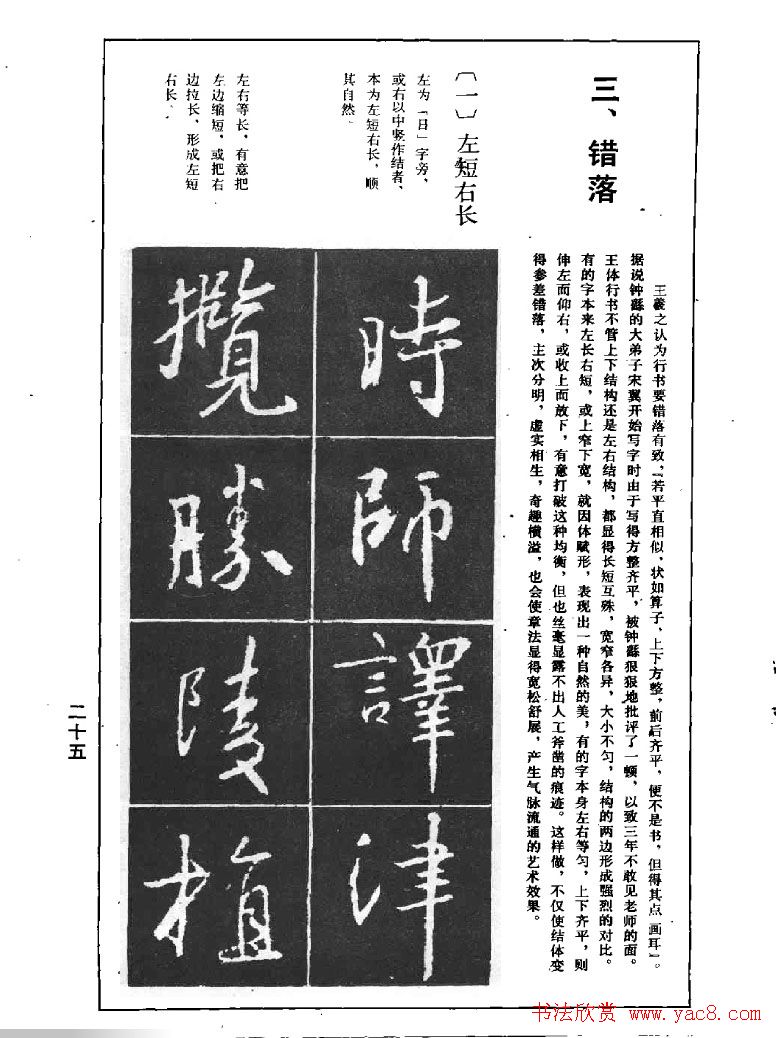 三、错落
王羲之认为行书要错落有致，“若平直相似，状如算子，上下方整，前后齐平，便不是书，但得其点画耳”。
据说钟繇的大弟子宋翼开始写字时由于写得方整齐平，被钟繇狠狠地批评了一顿，以致三年不敢见老师的面。
王体行书不管上下结构还是左右结构，都显得长短互殊，宽窄各异，大小不匀，结构的两边形成强烈的对比。
有的字本来左长右短，或上窄下宽，就因体赋形，表现出一种自然的美，有的字本身左右等匀，上下齐平，则
伸左而仰右，或收上而放下，有意打破这种均衡，但也丝毫显露不出人工斧凿的痕迹。这样做，不仅使结体变
得参差错落，主次分明，虚实相生，奇趣横溢，也会使章法显得宽松舒展，产生气脉流通的艺术效果。
〔一〕左短右长
左为「日」字旁、
或右以中竖作结者、
本为左短右长，顺
其自然。
左右等长，有意把
左边缩短，或把右
边拉长，形成左短
右长。
時
師
譯
津
攬
勝
陵
植
二十五
书法欣赏 www.yac8.com